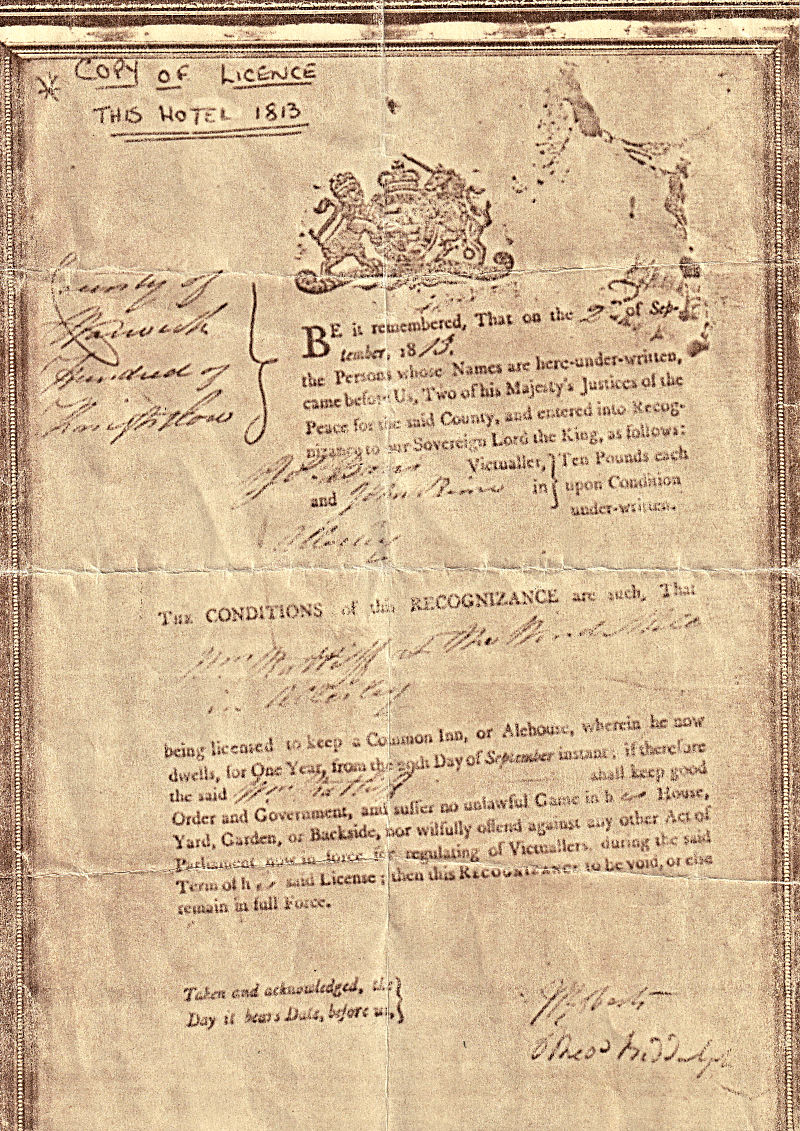 COPY OF LICENCE
THIS HOTEL 1813
County of
Warwick
Hundred of
Knightlow
BE it remembered, That on the 2d of Sep-
tember, 1813.
the Persons whose Names are here-under-written,
came before Us, Two of his Majesty's Justices of the
Peace for the said County, and entered into Recog-
nizance to our Sovereign Lord the King, as follows:
Victualler, Ten Pounds each
and John in upon Condition
under-written.
THE CONDITIONS of this RECOGNIZANCE are such, That
at the Wind Mill
in
being licensed to keep a Common Inn, or Alehouse, wherein he now
dwells, for One Year, from the 29th Day of September instant; if therefore
the said Wm shall keep good
Order and Government, and suffer no unlawful Game in h House,
Yard, Garden, or Backside, nor wilfully offend against any other Act of
Parliament now in force for regulating of Victuallers, during the said
Term of h said License; then this RECOGNIZANCE to be void, or else
remain in full Force.
Taken and acknowledged, the
Day it bears Date, before us.